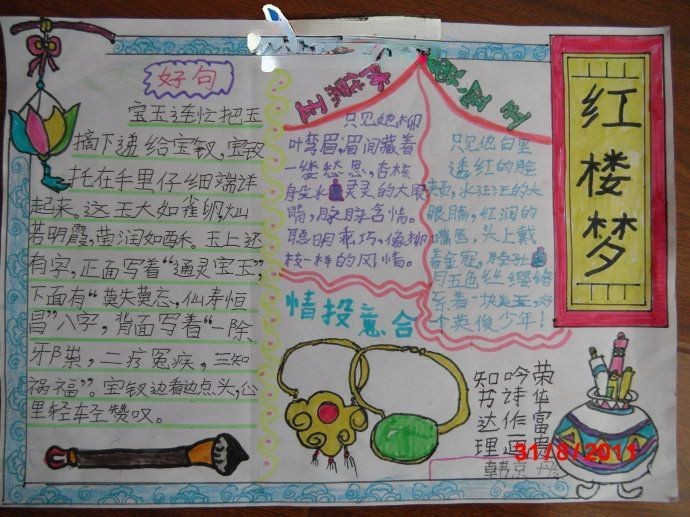 红楼梦
好句
宝玉连忙把玉
摘下递给宝钗,宝钗
托在手里仔细端详
起来。这玉大如雀卵,灿
若明霞,莹润如酥。玉上还
有字,正面写着“通灵宝玉”,
下面有“莫失莫忘,仙寿恒
昌”八字,背面写着“一除
二疗冤疾,三知
祸福”。宝钗边看边点头,心
里轻轻赞叹。
林黛玉
只见她柳
叶弯眉,眉间藏着
一缕愁思,杏核
般水灵灵的大眼
睛,脉脉含情。
聪明乖巧,像柳
枝一样的风情。
贾宝玉
只见他白里
透红的脸
水汪汪的大
眼睛,红润的
嘴唇,头上戴
着金冠,
月五色丝缨络
系着一块美玉,好
个英俊少年!
情投意合
知书达理
吟诗作画
荣华富贵
31/8/2011